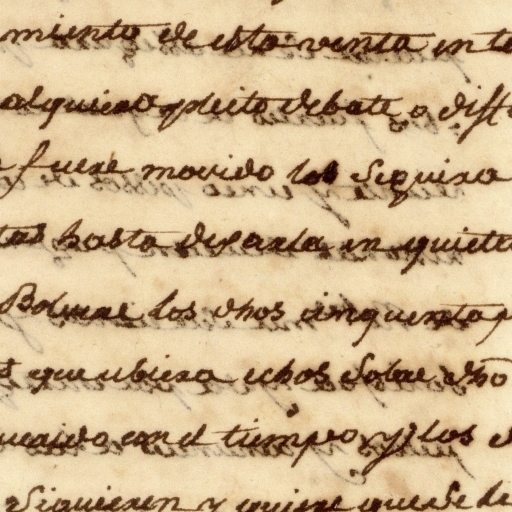 miento de esta venta en to
alquiera pleito debate o dife
fuere movido los Seguira
tas hasta dexarla en quieta
Bolvere los dhos cinquenta p
que ubiera echos Sobre dho
con el tiempo, y los
Siguieren y quiere que se le